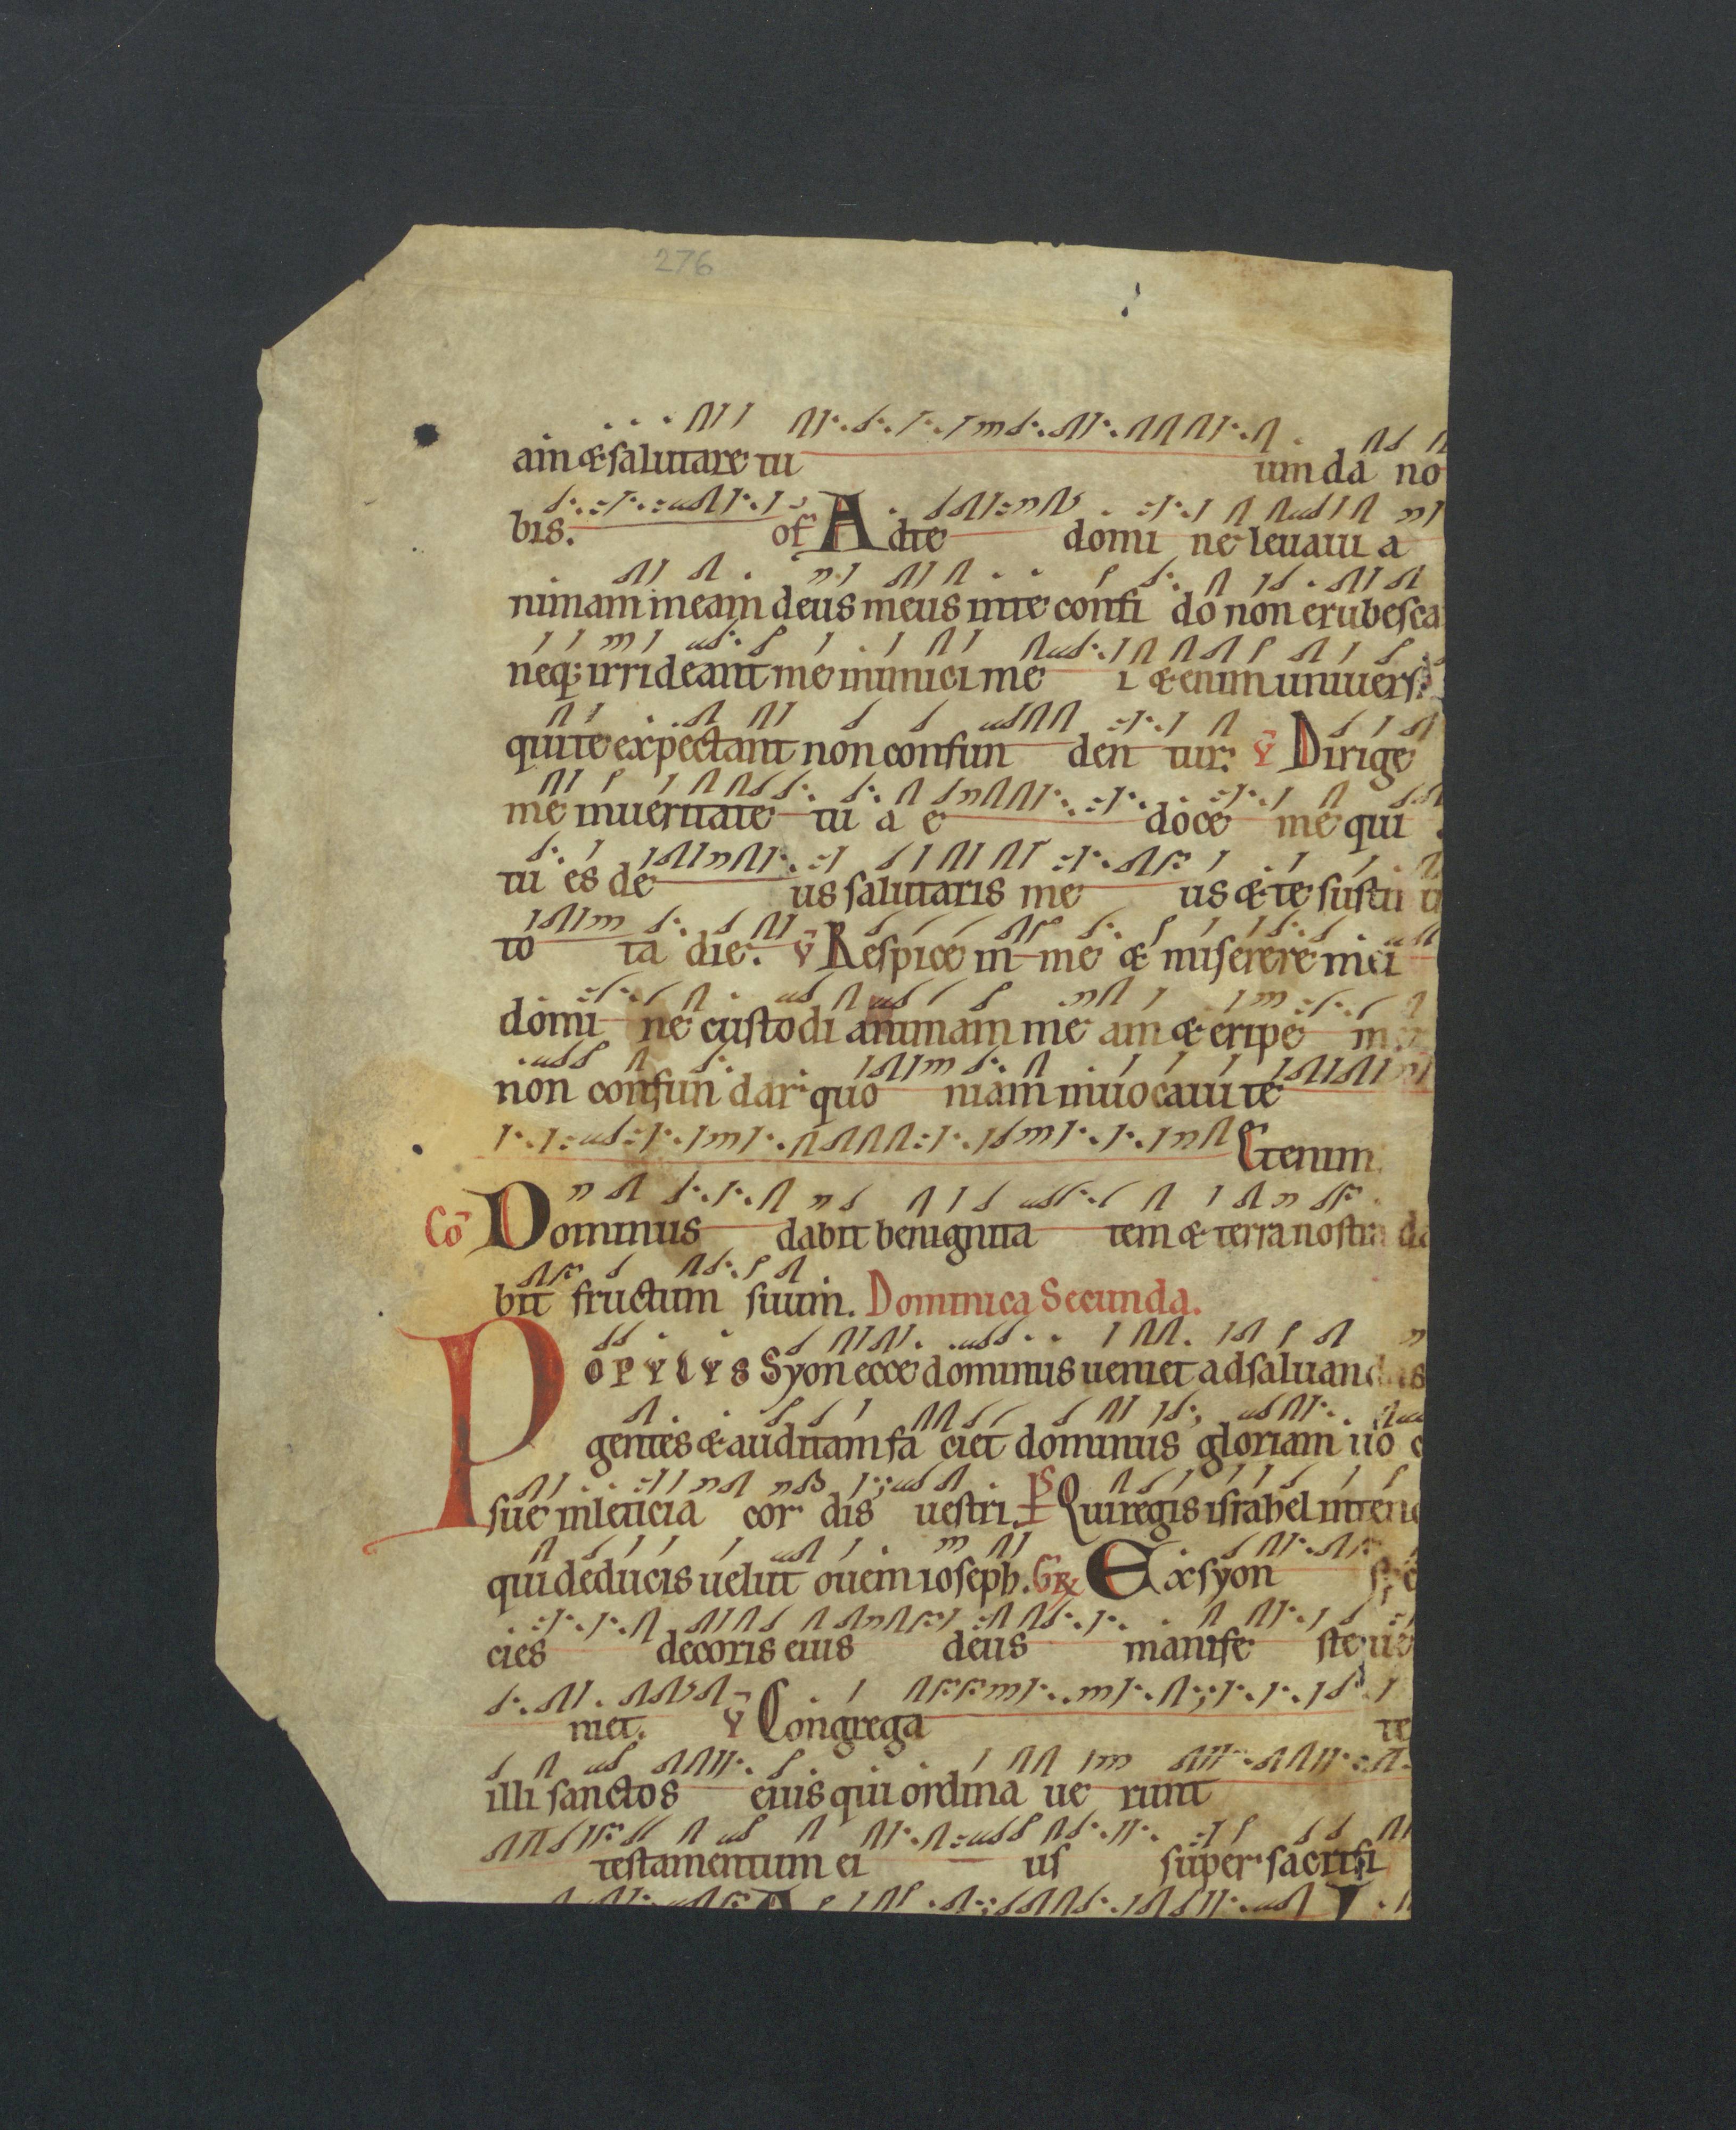 276
am & salutare tu um da no
bis. of A d te domi ne leuaui a
nimam meam deus meus in te confi do non erubesca
neq; irrideant me inimici me i & enim uniuers
qui te expectant non confun den tur. ℣ Dirige
me in ueritate tu a e doce me qui
tu es de us salutaris me us & te sustin u
to ta die. ℣ Respice in me & miserere mei
domi ne custodi animam me am & eripe me
non confun dar quo niam inuocaui te
Etenim
Cō Dominus dabit benignita tem & terra nostra da
bit fructum suum. Dominica Secunda.
POPVLVS Syon ecce dominus ueniet ad saluandas
gentes & auditam fa ciet dominus gloriam uo c
sue in leticia cor dis uestri. Ps Qui regis israhel intend
qui deducis uelut ouem ioseph. GR Ex syon spe
cies decoris eius deus manife ste ue
niet. ℣ Congrega te
illi sanctos eius qui ordina ue runt
testamentum ei us super sacrifi